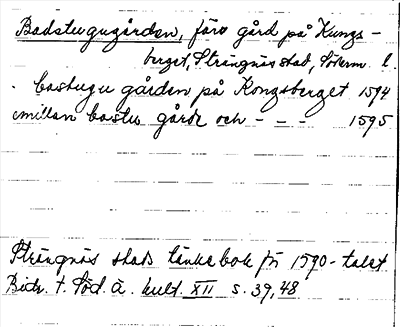 Badstugugården, förr gård på Kungs-
berget, Strängnäs stad, Söderm l.
bastugu gården på Kongsberget 1594
emillan bastu gårde och - - - 1595
Strängnäs stads tänkebok fr 1590-talet
Bidr. t. Söd. ä. kult. XII s. 39, 48